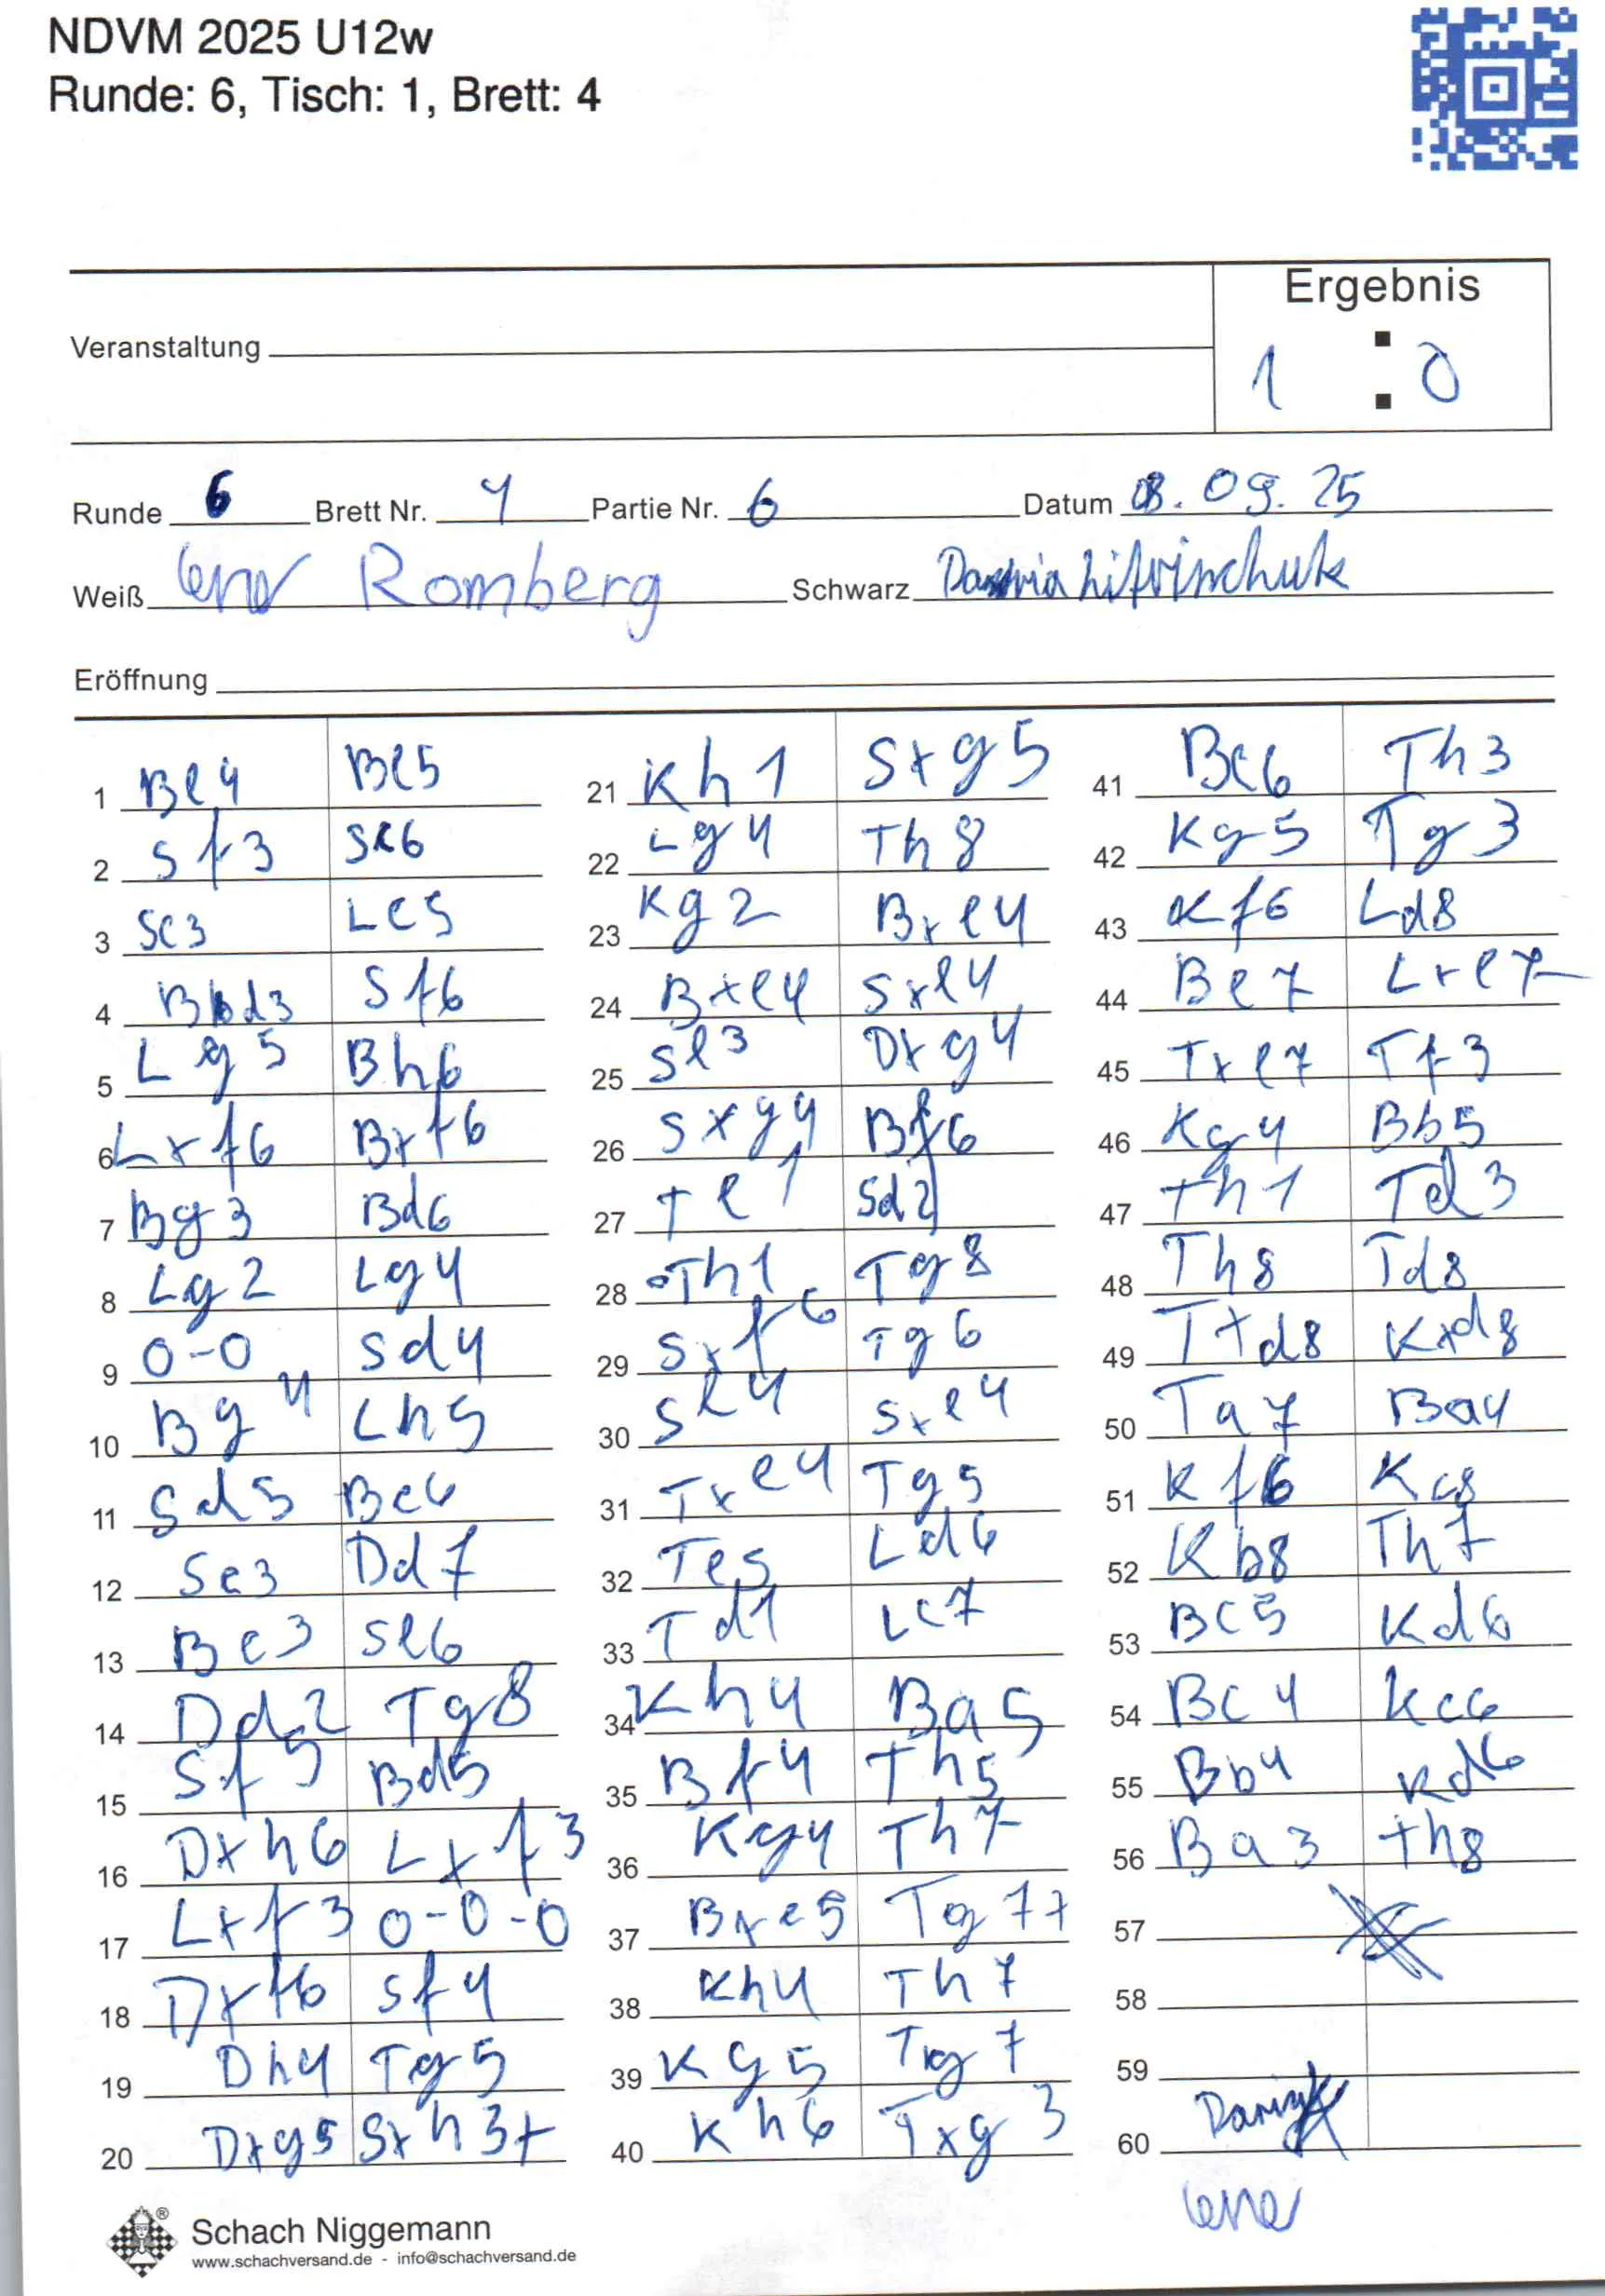 NDVM 2025 U12w
Runde: 6, Tisch: 1, Brett: 4
Ergebnis
Veranstaltung
1 : 0
Runde 6 Brett Nr. 4 Partie Nr. 6 Datum 08.09.25
Weiß Romberg Schwarz
Eröffnung
1 Be4 Be5 21 Kh1 Sxg5 41 Bc6 Th3
2 Sf3 Sc6 22 Lg4 Th8 42 Kg5 Tg3
3 Sc3 Lc5 23 Kg2 Bxe4 43 Kf6 Ld8
4 Bd3 Sf6 24 Bxe4 Sxe4 44 Be7 Lxe7
5 Lg5 Bh6 25 Se3 Dxg4 45 Txe7 Tf3
6 Lxf6 Bxf6 26 Sxg4 Bf6 46 Kg4 Bb5
7 Bg3 Bd6 27 Te1 Sd2 47 Th1 Td3
8 Lg2 Lg4 28 Th1 Tg8 48 Th8 Td8
9 0-0 Sd4 29 Sxf6 Tg6 49 Txd8 Kxd8
10 Bg4 Lh5 30 Se4 Sxe4 50 Ta7 Ba4
11 Sd5 Bc6 31 Txe4 Tg5 51 Kf6 Kc8
12 Se3 Dd7 32 Te5 Ld6 52 Kb8 Th7
13 Bc3 Se6 33 Td1 Lc7 53 Bc5 Kd6
14 Dd2 Tg8 34 Kh4 Ba5 54 Bc4 Kc6
15 Sf5 Bd5 35 Bf4 Th5 55 Bb4 Kd6
16 Dxh6 Lxf3 36 Kg4 Th7 56 Ba3 Th8
17 Lxf3 0-0-0 37 Bxe5 Tg7+ 57
18 Dxf6 Sf4 38 Kh4 Th7 58
19 Dh4 Tg5 39 Kg5 Tg7 59
20 Dxg5 Sxh3+ 40 Kh6 Txg3 60
Schach Niggemann
www.schachversand.de - info@schachversand.de